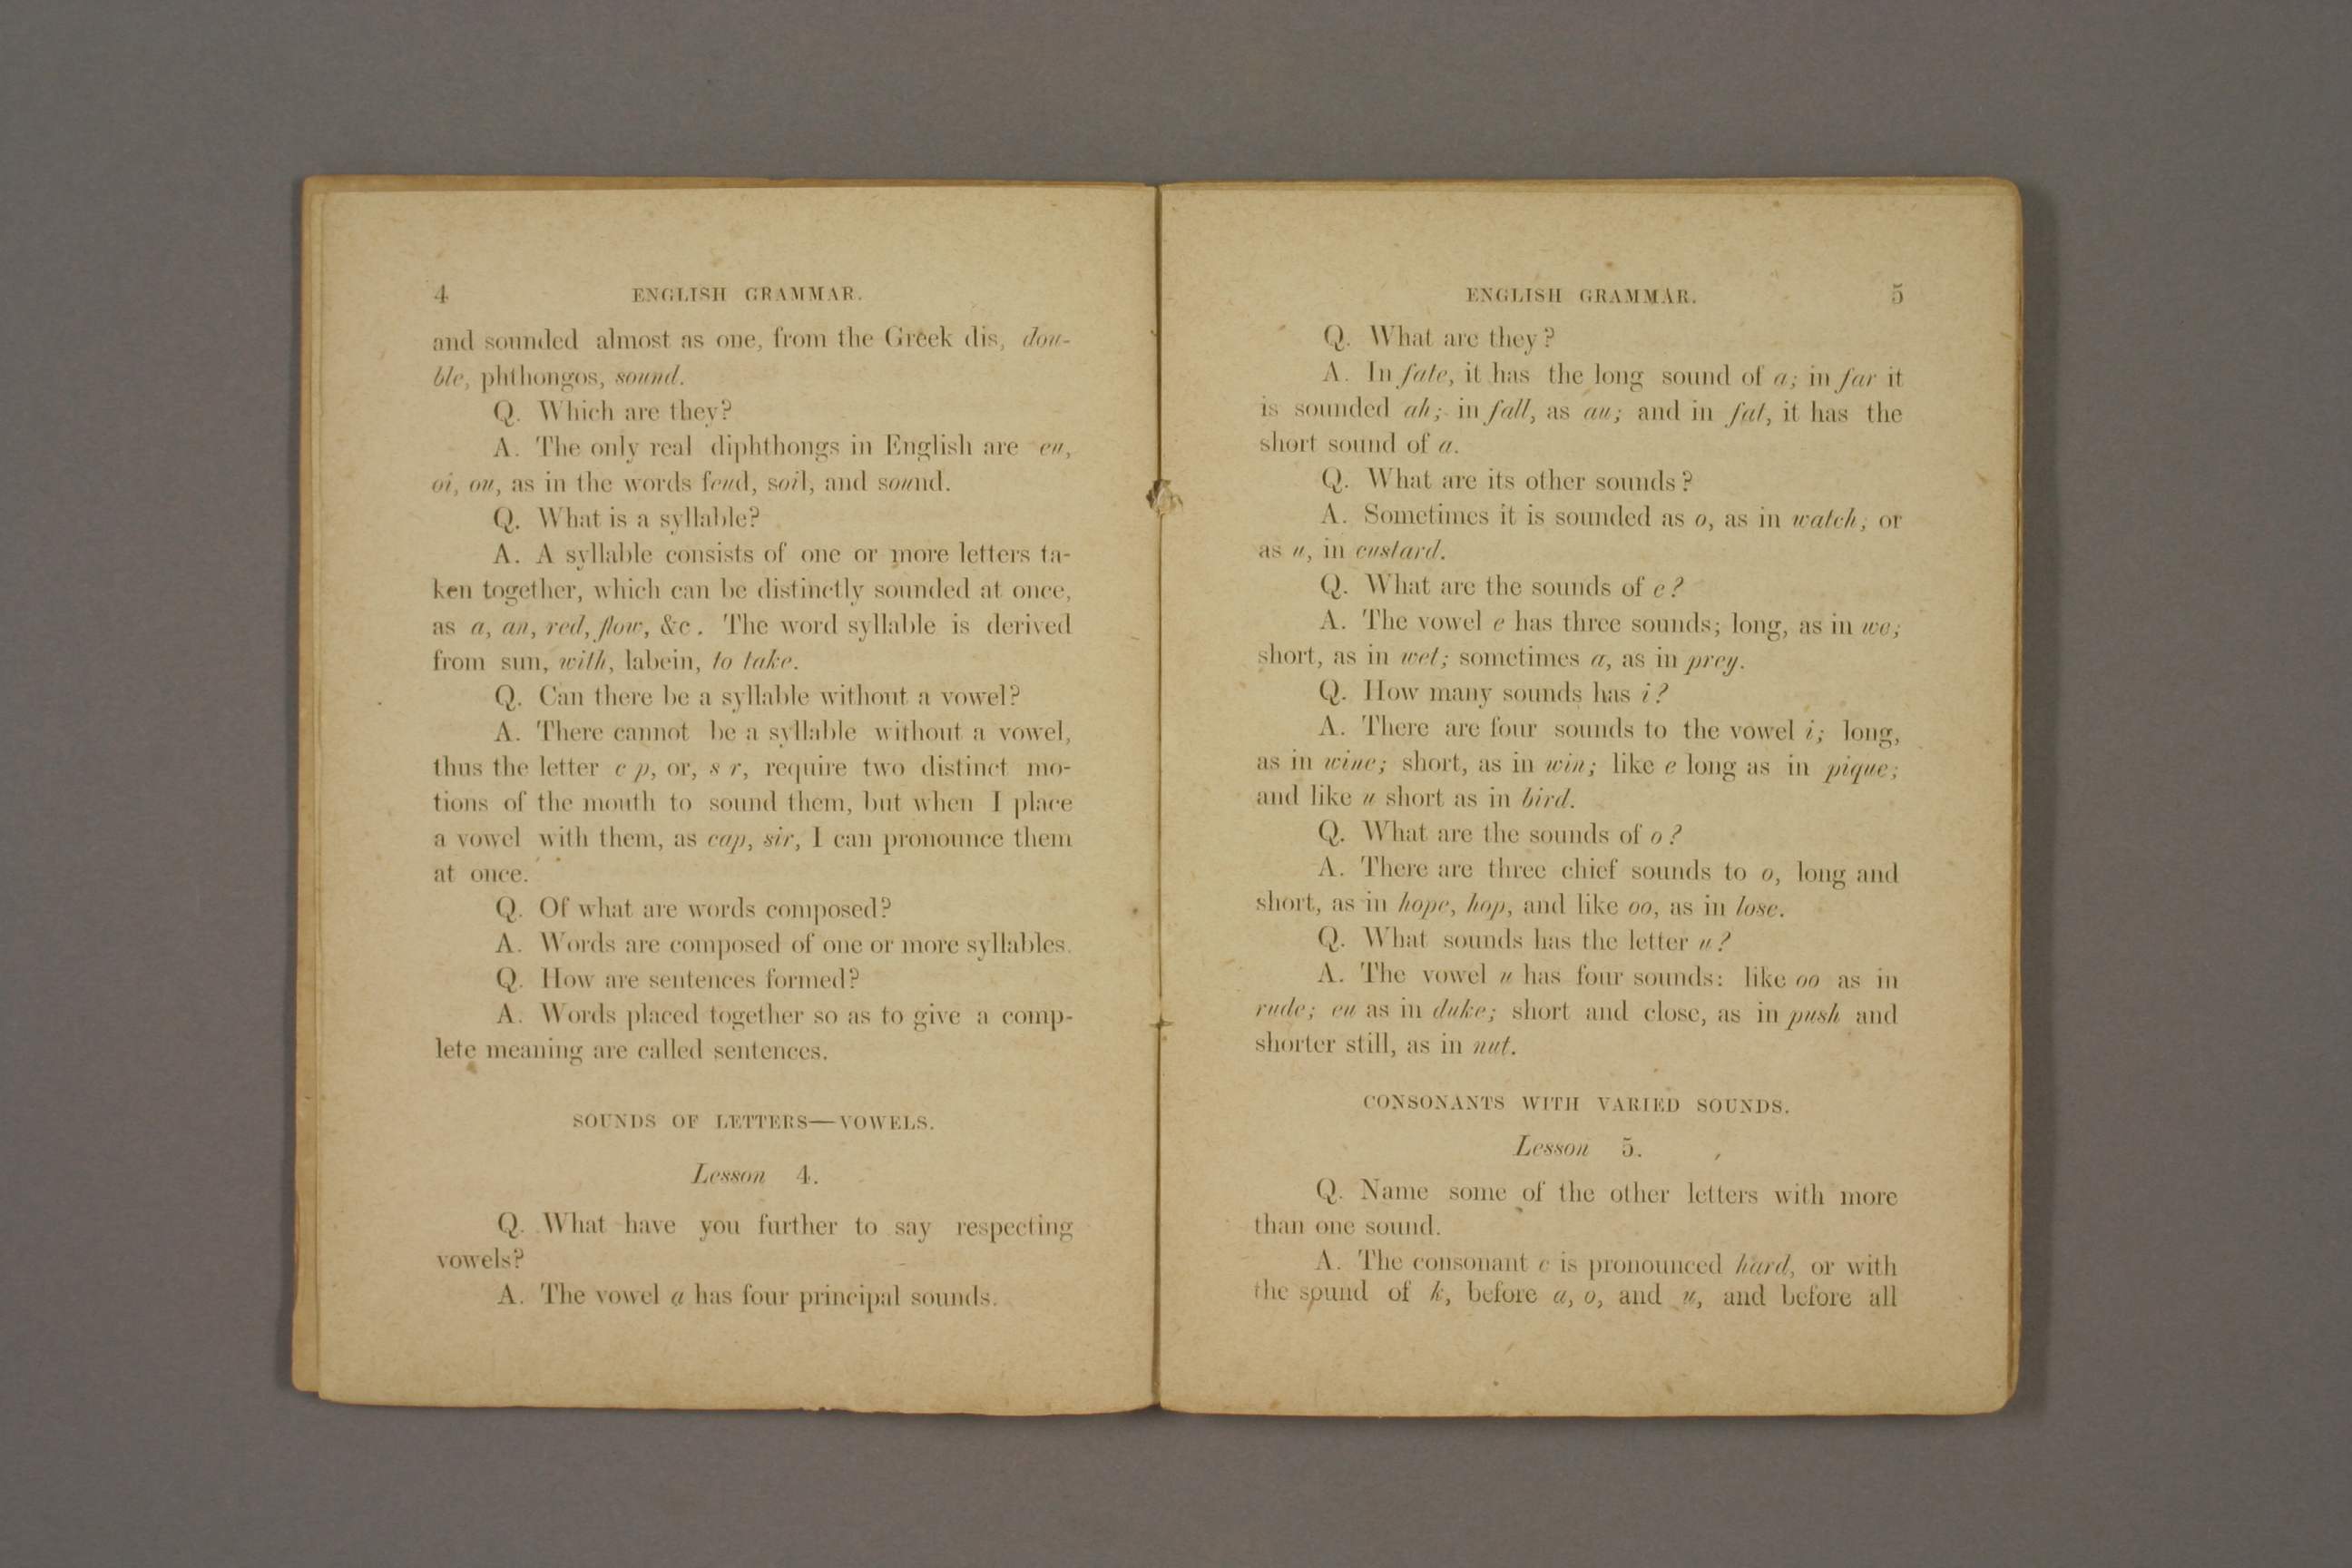 4 ENGLISH GRAMMAR.
and sounded almost as one, from the Greek dis, dou-
ble, phthongos, sound.
Q. Which are they?
A. The only real diphthongs in English are eu,
oi, ou, as in the words feud, soil, and sound.
Q. What is a syllable?
A. A syllable consists of one or more letters ta-
ken together, which can be distinctly sounded at once,
as a, an, red, flow, &c. The word syllable is derived
from sun, with, labein, to take.
Q. Can there be a syllable without a vowel?
A. There cannot be a syllable without a vowel,
thus the letter c p, or, s r, require two distinct mo-
tions of the mouth to sound them, but when I place
a vowel with them, as cap, sir, I can pronounce them
at once.
Q. Of what are words composed?
A. Words are composed of one or more syllables.
Q. How are sentences formed?
A. Words placed together so as to give a comp-
lete meaning are called sentences.
SOUNDS OF LETTERS—VOWELS.
Lesson 4.
Q. What have you further to say respecting
vowels?
A. The vowel a has four principal sounds.
ENGLISH GRAMMAR. 5
Q. What are they?
A. In fate, it has the long sound of a; in far it
is sounded ah; in fall, as au; and in fat, it has the
short sound of a.
Q. What are its other sounds?
A. Sometimes it is sounded as o, as in watch; or
as u, in custard.
Q. What are the sounds of e?
A. The vowel e has three sounds; long, as in we;
short, as in wet; sometimes a, as in prey.
Q. How many sounds has i?
A. There are four sounds to the vowel i; long,
as in wine; short, as in win; like e long as in pique;
and like u short as in bird.
Q. What are the sounds of o?
A. There are three chief sounds to o, long and
short, as in hope, hop, and like oo, as in lose.
Q. What sounds has the letter u?
A. The vowel u has four sounds: like oo as in
rude; eu as in duke; short and close, as in push and
shorter still, as in nut.
CONSONANTS WITH VARIED SOUNDS.
Lesson 5.
Q. Name some of the other letters with more
than one sound.
A. The consonant c is pronounced hard, or with
the sound of k, before a, o, and u, and before all